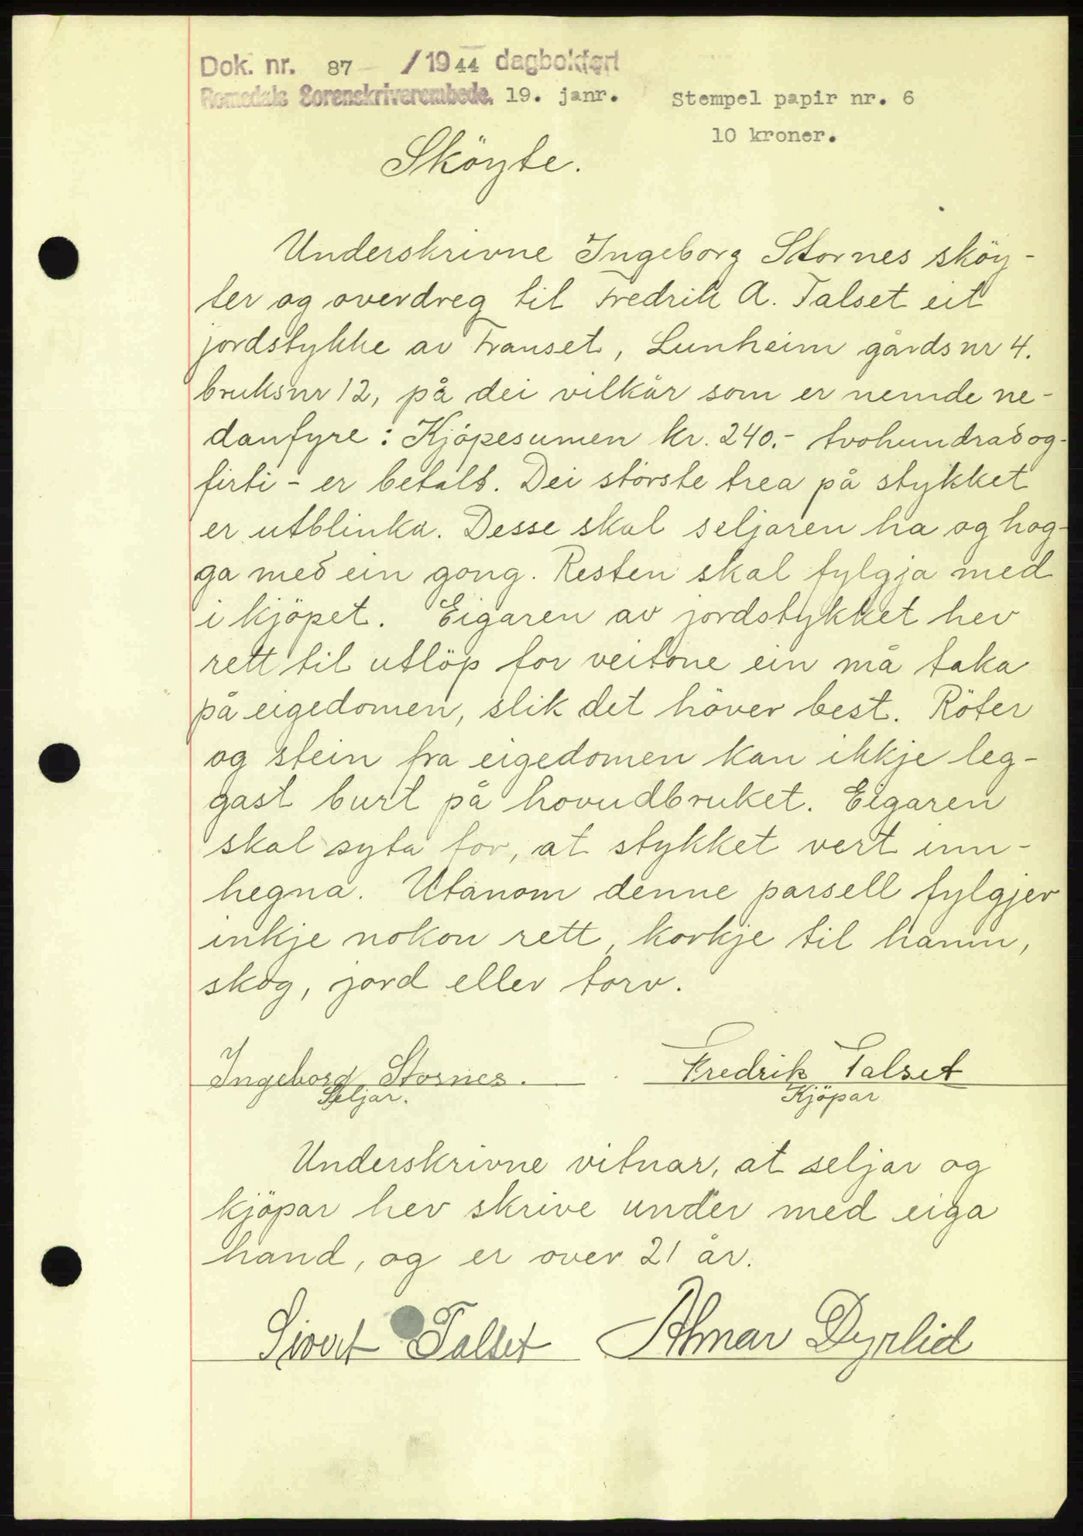 Dok. nr. 87 / 1944 dagbokført
Romsdals Sorenskriverembede. 19. janr. Stempel papir nr. 6
10 kroner.
Sköyte.
Underskrivne Ingeborg Stornes sköy-
ter og overdreg til Fredrik A. Talset eit
jordstykke av Franset, Lunheim gårdsnr 4.
bruksnr 12, på dei vilkår som er nemde ne-
danfyre: Kjöpesumen kr. 240.- tvohundrad og-
firti - er betalt. Dei störste trea på stykket
er utblinka. Desse skal seljaren ha og hog-
ga med ein gong. Resten skal fylgja med
i kjöpet. Eigaren av jordstykket hev
rett til utlöp for veitone ein må taka
på eigedomen, slik det höver best. Röter
og stein fra eigedomen kan ikkje leg-
gast burt på hovudbruket. Eigaren
skal syta for, at stykket vert inn-
hegna. Utanom denne parsell fylgjer
inkje nokon rett, korkje til hamn,
skog, jord eller torv.
Ingeborg Stornes. Fredrik Talset
Seljar. Kjöpar
Underskrivne vitnar, at seljar og
kjöpar hev skrive under med eiga
hand, og er over 21 år.
Sivert Talset Almar Dyrlid